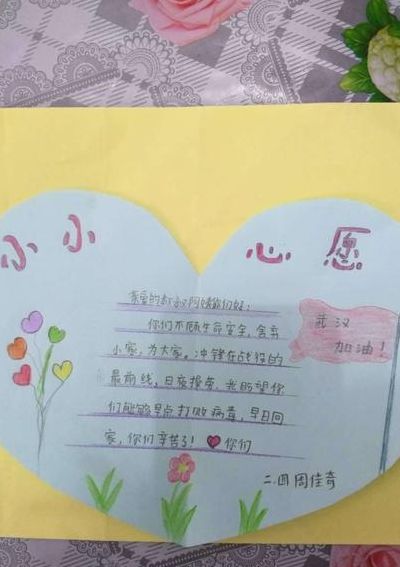 小小 心愿
亲爱的叔叔阿姨你们好：
你们不顾生命安全，舍弃
小家，为大家。冲锋在战役的
最前线，日夜操劳。我盼望你
们能够早点打败病毒，早日回
家，你们辛苦了！❤你们
武汉
加油！
二.四周佳奇